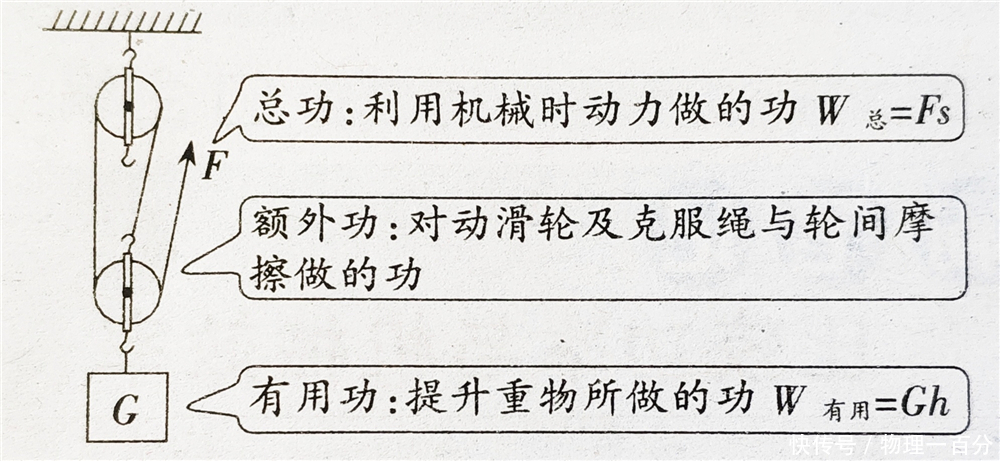 总功:利用机械时动力做的功 W总=Fs
F
额外功:对动滑轮及克服绳与轮间摩
擦做的功
G
有用功:提升重物所做的功 W有用=Gh
快传号 / 物理一百分